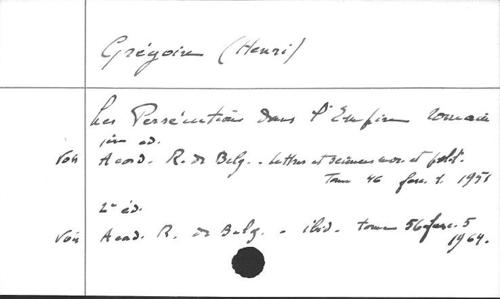 Grégoire (Henri)
Les Persécutions dans l'Empire romain
1ère éd.
Voir Acad. R. de Belg. - Lettres et sciences mor. et polit.
Tome 46 fasc. 1. 1951
2e éd.
Voir Acad. R. de Belg. - ibid. tome 56 fasc. 5
1964.